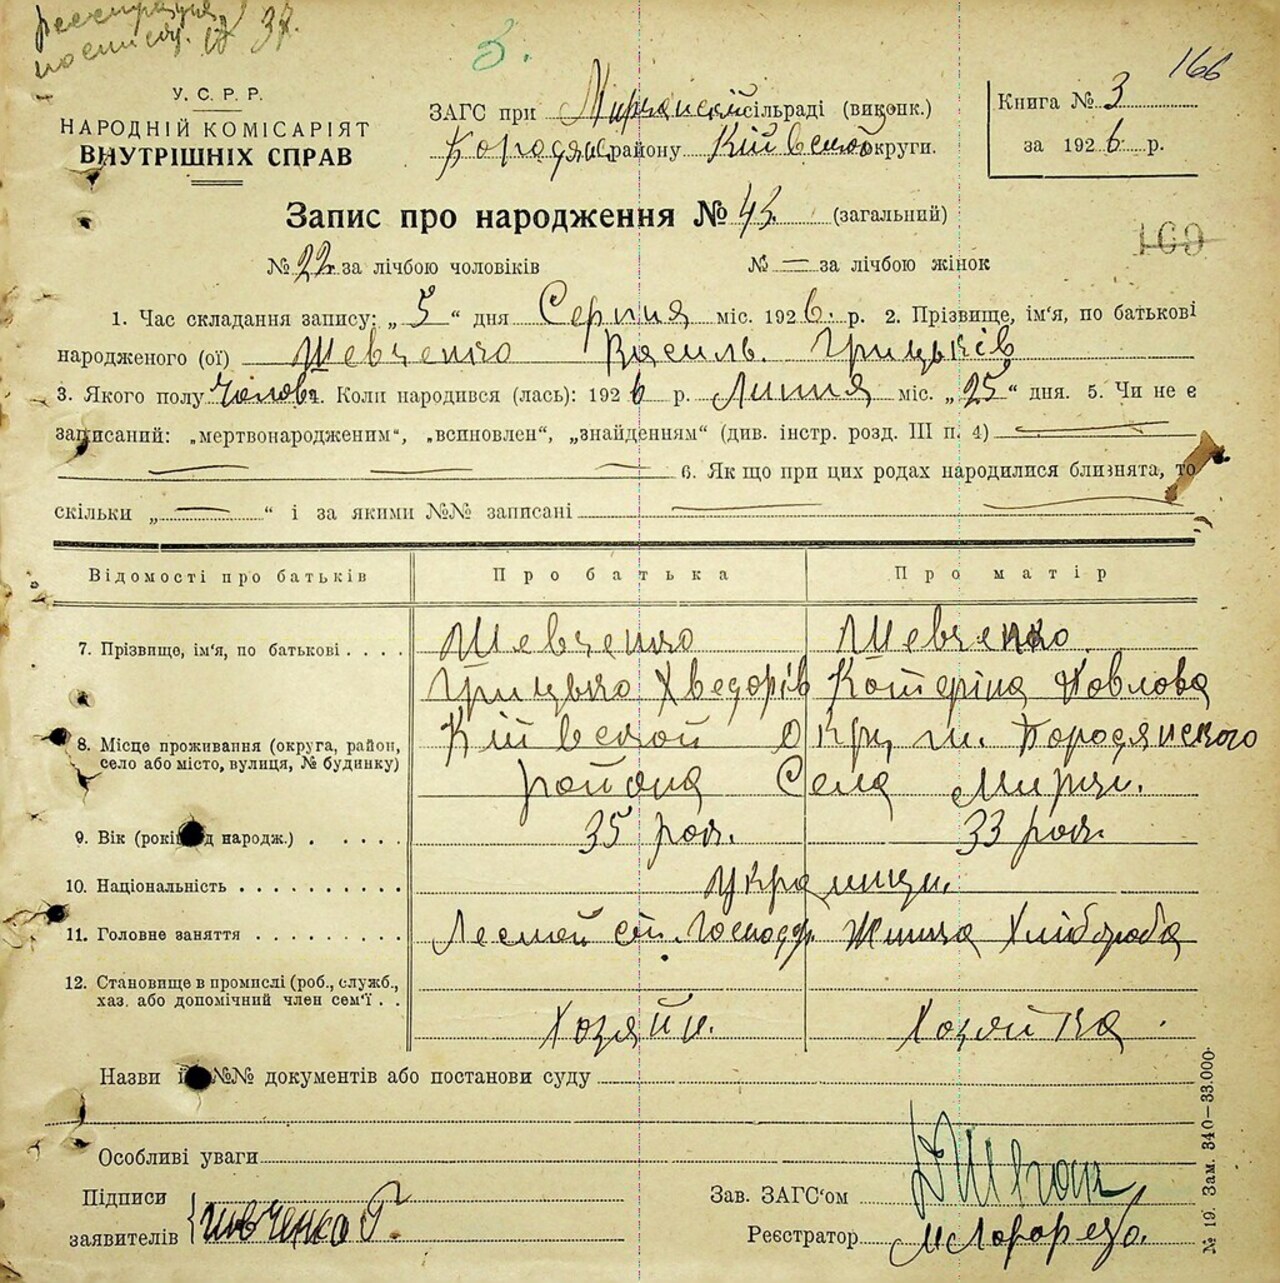 166
У. С. Р. Р.
НАРОДНІЙ КОМІСАРІЯТ
ВНУТРІШНІХ СПРАВ
3.
ЗАГС при Мирчанскій сільраді (виконк.)
Бородянс району Кіївской округи.
Книга № 3
за 1926 р.
Запис про народження № 43. (загальний)
169
№ 22 за лічбою чоловіків
№ — за лічбою жінок
1. Час складання запису: „ 5 “ дня Серпня міс. 1926. р. 2. Прізвище, ім'я, по батькові
народженого (ої) Шевченко Василь. Грицьків
3. Якого полу Чолові. Коли народився (лась): 1926 р. Липня міс. „ 25 “ дня. 5. Чи не є
записаний: „мертвонародженим“, „всиновлен“, „знайденням“ (див. інстр. розд. III п. 4) —
— — — 6. Як що при цих родах народилися близнята, то
скільки „ — “ і за якими №№ записані — —
Відомості про батьків
Про батька
Про матір
7. Прізвище, ім'я, по батькові . . . .
Шевченко
Шевченко
Грицько Хведорів
Катеріна Павлова
8. Місце проживання (округа, район,
село або місто, вулиця, № будинку)
Кіївской Окри, Бородянского
района Села Мирчи.
9. Вік (років від народж.) . . . . .
35 рок.
33 рок.
10. Національність . . . . . . . . . .
Украинци.
11. Головне заняття . . . . . . . . .
Сіл. Господар
Жинка Хлібороба
12. Становище в промислі (роб., служб.,
хаз. або допомічний член сем'ї . .
Хозяйн.
Хозяйка
Назви й №№ документів або постанови суду
Особливі уваги
Підписи
заявителів
Шевченко Г.
Зав. ЗАГС'ом
Реєстратор
№ 19. Зам. 340—33.000.